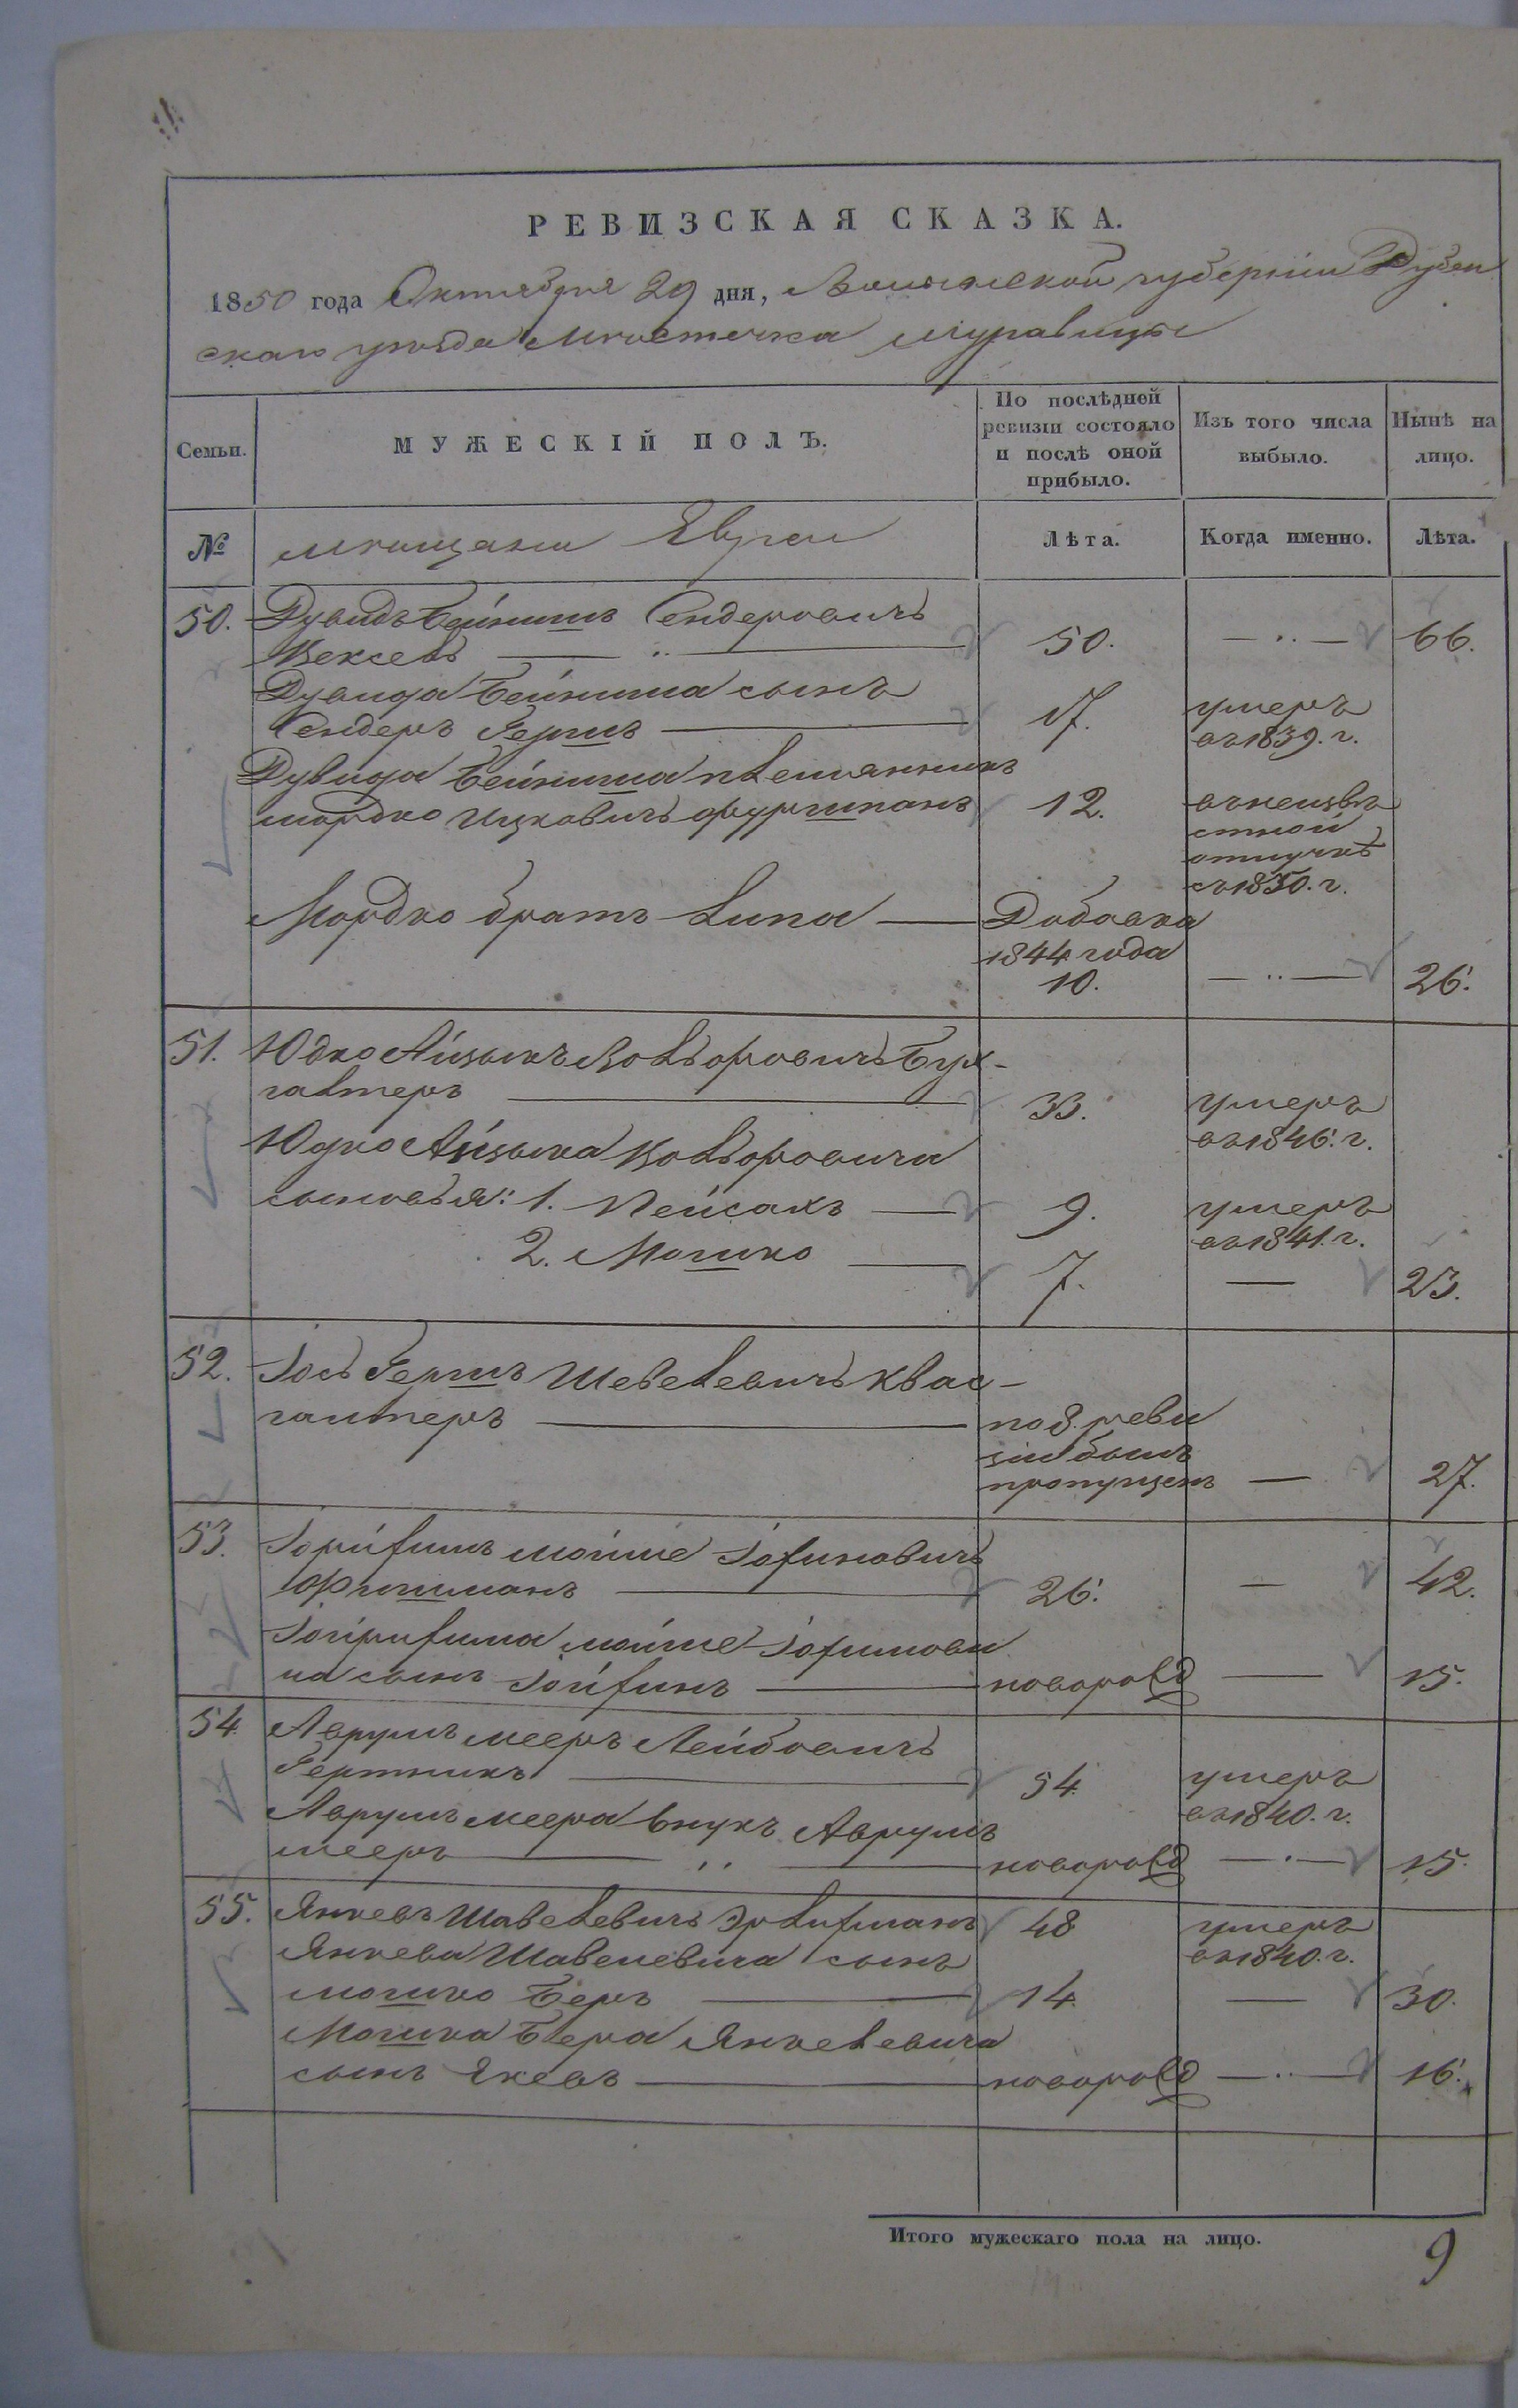 РЕВИЗСКАЯ СКАЗКА.
1850 года Октября 29 дня, Волынской губерніи Дубен
скаго уѣзда мѣстечка Муравицы
Семьи.
МУЖЕСКІЙ ПОЛЪ.
По послѣдней
ревизіи состояло
и послѣ оной
прибыло.
Изъ того числа
выбыло.
Нынѣ на
лицо.
№ мѣщани Евреи Лѣта. Когда именно. Лѣта.
50. Дувидъ Бейнишъ Сендеровичъ
Вексель 50. 66.
Дувида Бейниша сынъ
Сендеръ Гершъ 17. умеръ
въ 1839. г.
Дувида Бейниша племянникъ
мордко Ицковичъ фуршпанъ 12. въ неизвѣ
стной
отлучкѣ
съ 1850. г.
Мордко братъ Липа Добавка
1844 года
10. 26.
51. Юдко Айзыкъ Волворовичъ Бух-
галтеръ 33. умеръ
въ 1846. г.
Юдко Айзыка Волворовича
сыновья: 1. Пейсахъ 9. умеръ
въ 1841. г.
2. Мошко 7. 23.
52. Іось Гершъ Шевелевичъ Квас-
галтеръ по 8. реви
зіи былъ
пропущенъ 27.
53. мойше
Фишманъ 26. 42.
мойше
ча сынъ новорожд 15.
54 Аврумъ мееръ Лейбовичъ
54. умеръ
въ 1840. г.
Аврумъ меера внукъ Аврумъ
мееръ новорожд 15.
55. Янкель Шавелевичъ Эрлихманъ 48 умеръ
въ 1840. г.
Янкеля Шавелевича сынъ
мошко Беръ 14. 30.
Мошка Бера Янкелевича
сынъ новорожд 16.
Итого мужескаго пола на лицо. 9